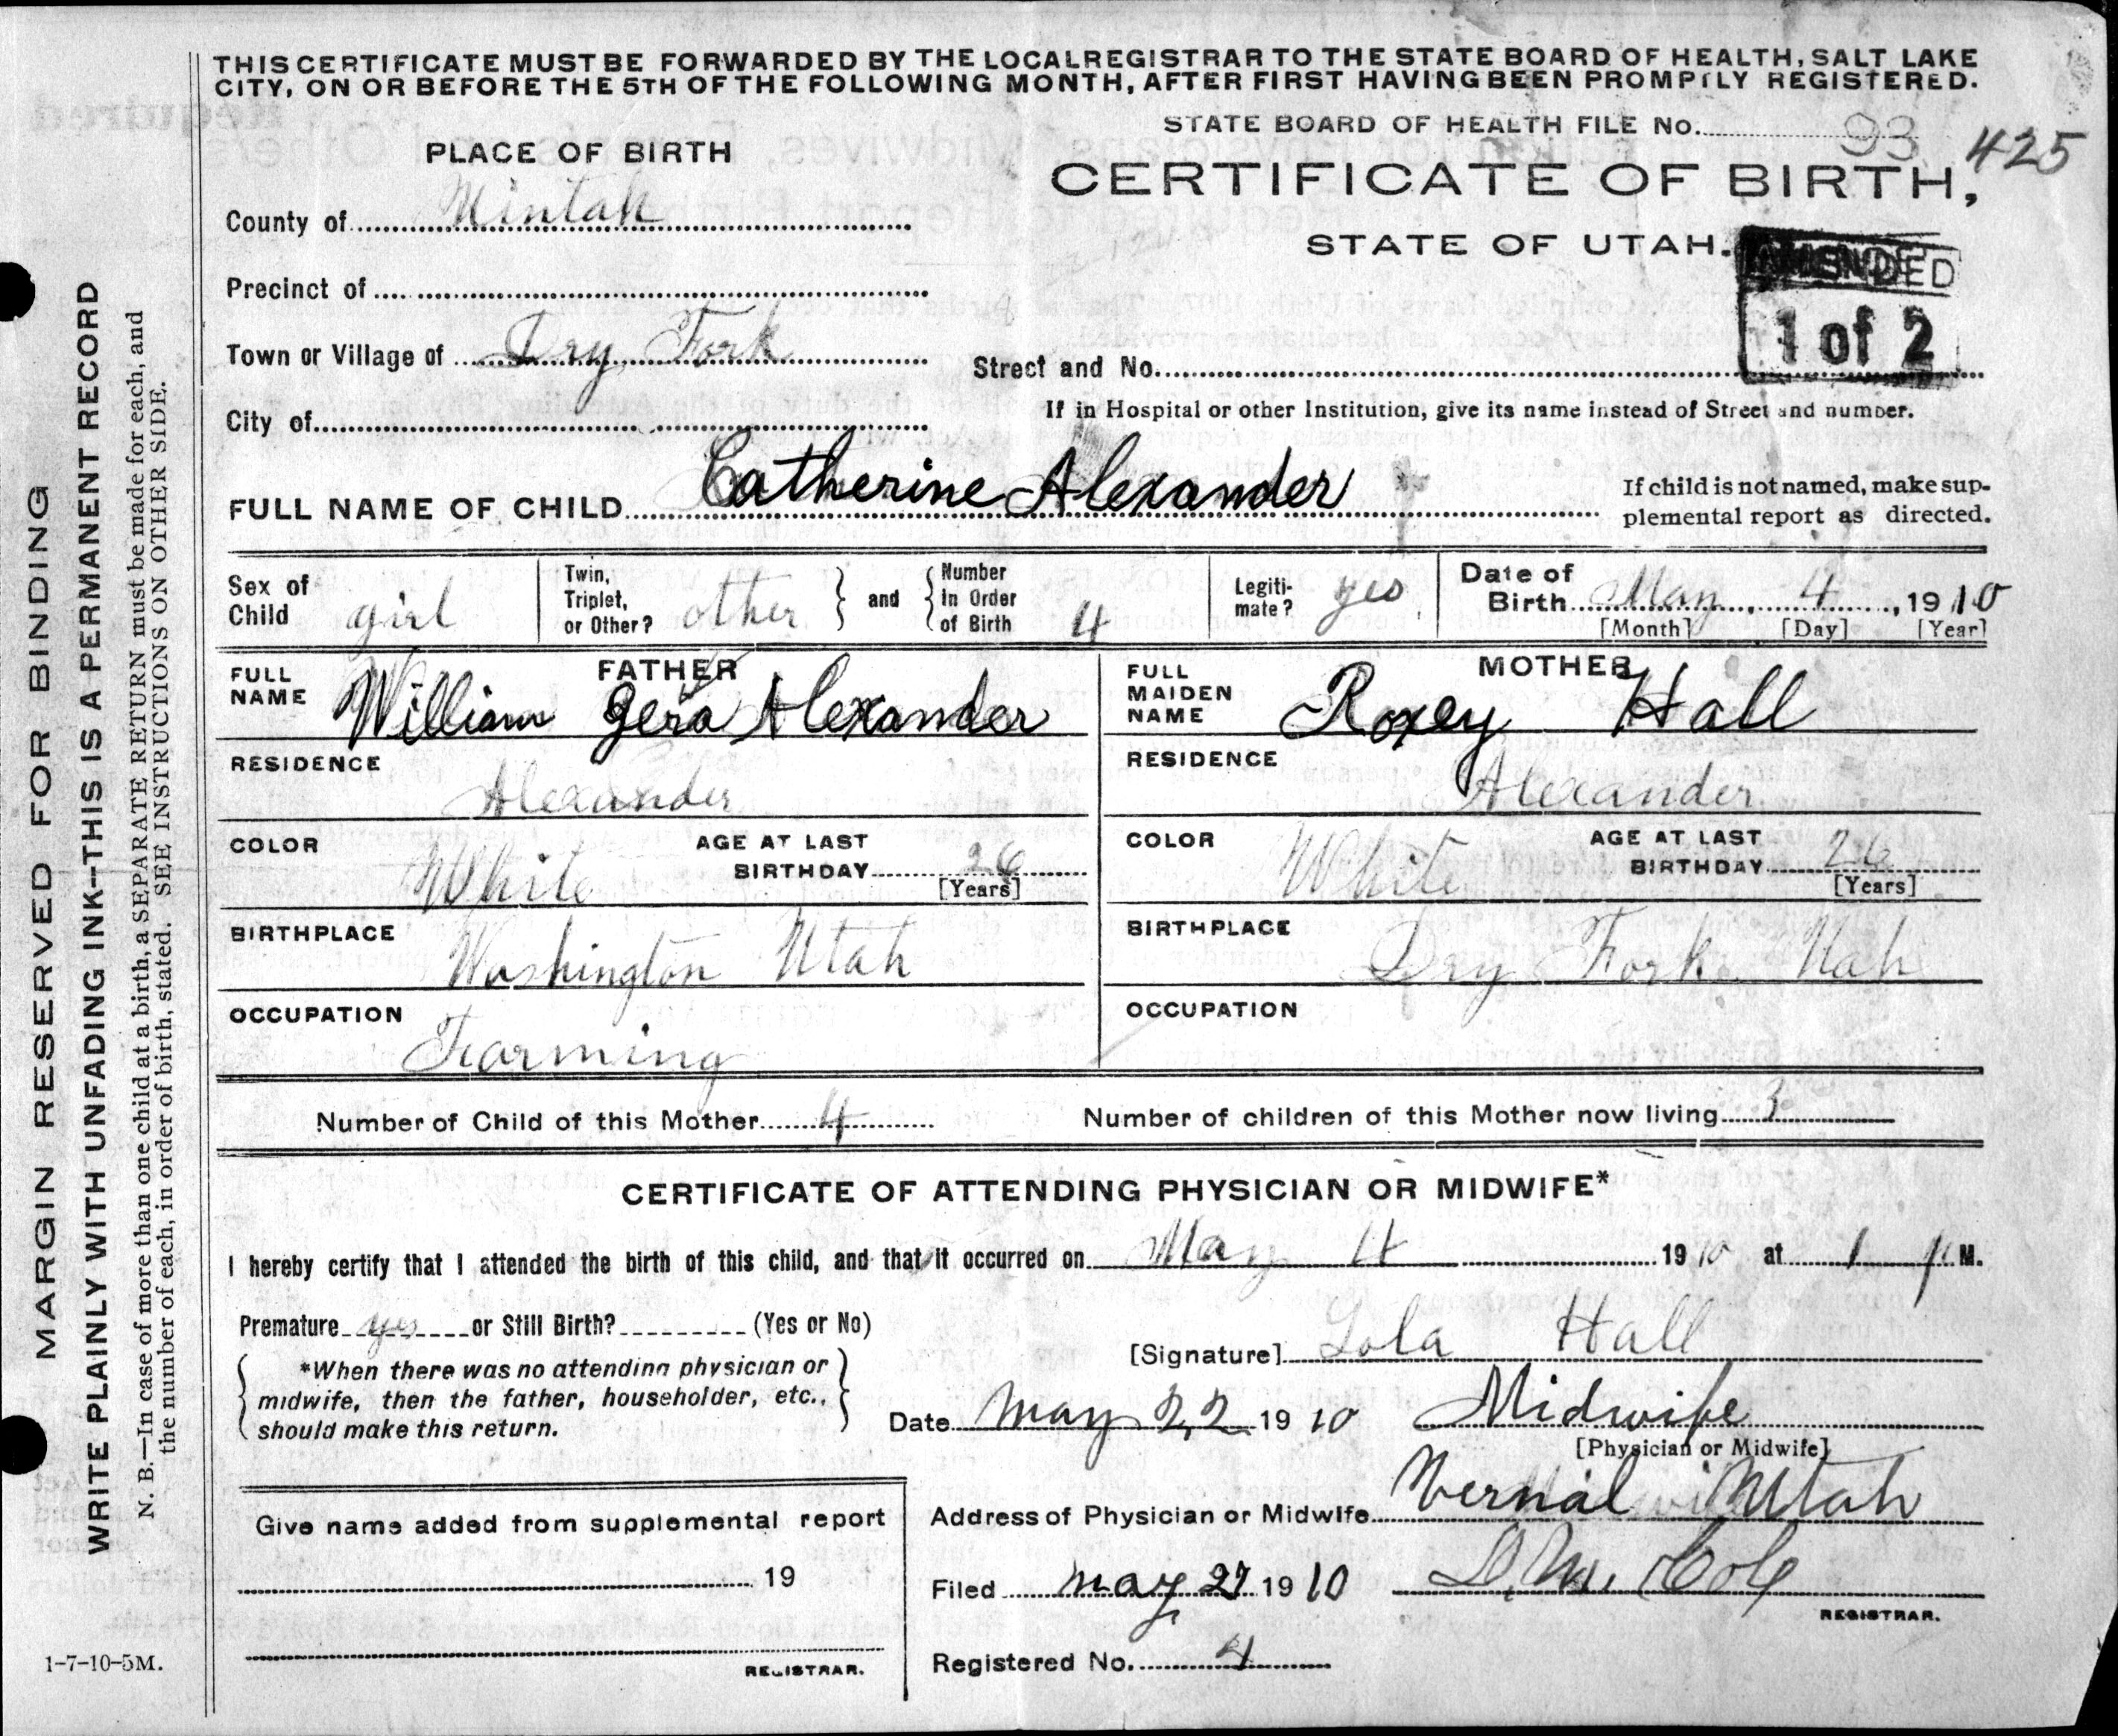 THIS CERTIFICATE MUST BE FORWARDED BY THE LOCAL REGISTRAR TO THE STATE BOARD OF HEALTH, SALT LAKE
CITY, ON OR BEFORE THE 5TH OF THE FOLLOWING MONTH, AFTER FIRST HAVING BEEN PROMPTLY REGISTERED.
STATE BOARD OF HEALTH FILE No. 93 425
PLACE OF BIRTH
CERTIFICATE OF BIRTH,
County of Uintah
STATE OF UTAH.
AMENDED
1 of 2
Precinct of
Town or Village of Dry Fork
Street and No.
City of
If in Hospital or other Institution, give its name instead of Street and number.
FULL NAME OF CHILD Catherine Alexander
If child is not named, make sup-
plemental report as directed.
Sex of Child girl
Twin, Triplet, or Other? other and Number In Order of Birth 4
Legiti-mate? yes
Date of Birth May 4, 1910
[Month] [Day] [Year]
FATHER
FULL NAME William Gera Alexander
MOTHER
FULL MAIDEN NAME Roxey Hall
RESIDENCE Alexander
RESIDENCE Alexander
COLOR White AGE AT LAST BIRTHDAY 26 [Years]
COLOR White AGE AT LAST BIRTHDAY 26 [Years]
BIRTHPLACE Washington Utah
BIRTHPLACE Dry Fork Utah
OCCUPATION Farming
OCCUPATION
Number of Child of this Mother 4 Number of children of this Mother now living 3
CERTIFICATE OF ATTENDING PHYSICIAN OR MIDWIFE*
I hereby certify that I attended the birth of this child, and that it occurred on May 4 1910 at 1 P. M.
Premature yes or Still Birth? (Yes or No)
[Signature] Lola Hall
*When there was no attending physician or
midwife, then the father, householder, etc.,
should make this return.
Date May 22 1910 Midwife
[Physician or Midwife]
Address of Physician or Midwife Vernal Utah
Give name added from supplemental report
19
REGISTRAR.
Filed May 27 1910 D. M. Cole
REGISTRAR.
Registered No. 4
1-7-10-5M.
MARGIN RESERVED FOR BINDING
WRITE PLAINLY WITH UNFADING INK--THIS IS A PERMANENT RECORD
N. B.—In case of more than one child at a birth, a SEPARATE RETURN must be made for each, and
the number of each, in order of birth, stated. SEE INSTRUCTIONS ON OTHER SIDE.